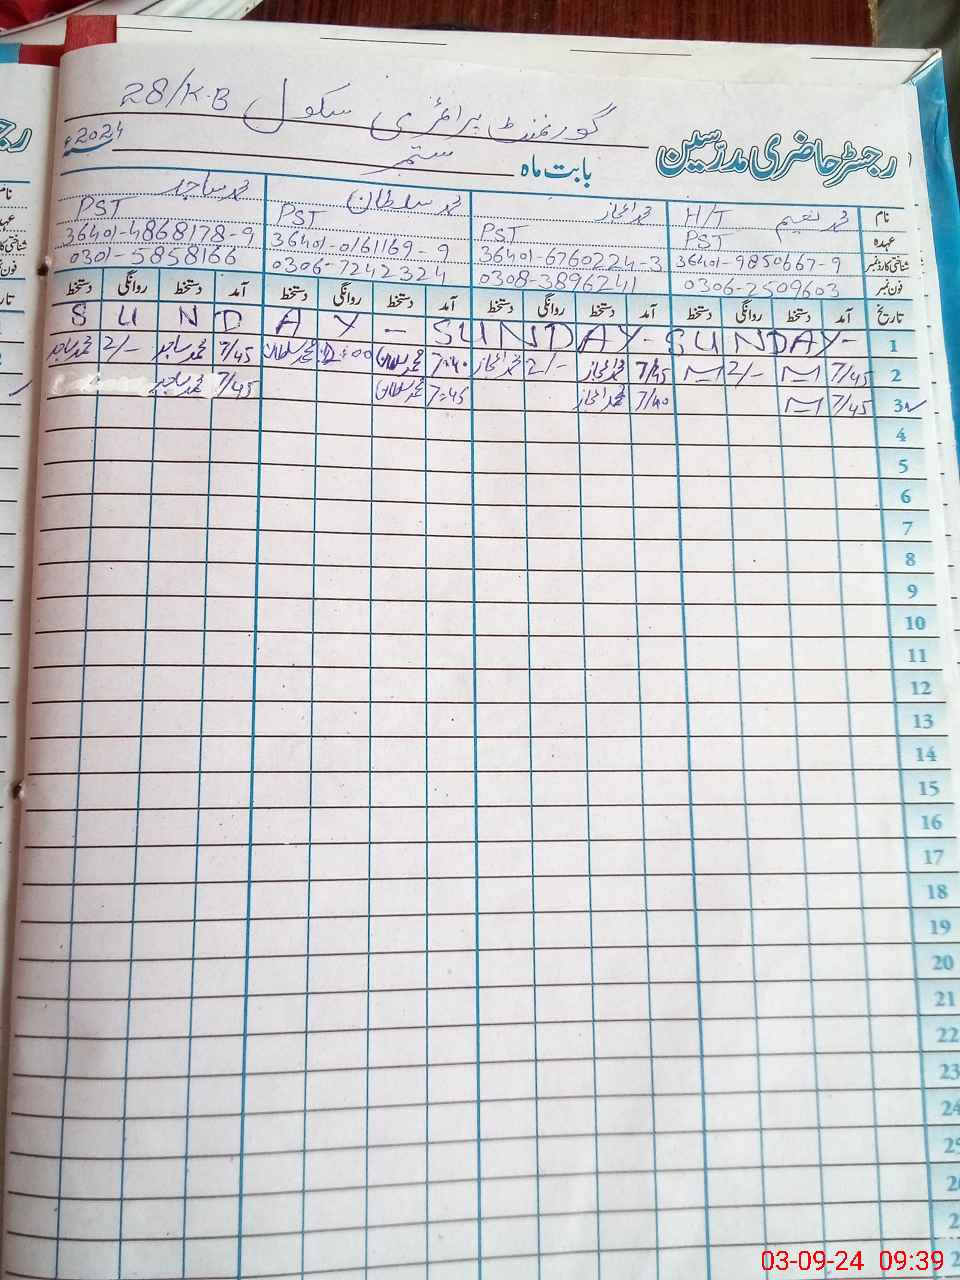 گورنمنٹ پرائمری سکول 28/K-B
رجسٹر حاضری مدرسین بابت ماہ ستمبر 2024ء
نام محمد نعیم H/T محمد اعجاز محمد سلطان محمد ساجد
عہدہ PST PST PST PST
شناختی کارڈ نمبر 36401-9850667-9 36401-6760224-3 36401-0161169-9 36401-4868178-9
فون نمبر 0306-2509603 0308-3896241 0306-7242324 0301-5858166
تاریخ آمد دستخط روانگی دستخط آمد دستخط روانگی دستخط آمد دستخط روانگی دستخط آمد دستخط روانگی دستخط
1 SUNDAY - SUNDAY - SUNDAY -
2 7/45 2/- 7/45 محمد اعجاز 2/- محمد اعجاز 7:40 محمد سلطان محمد سلطان 7/45 محمد ساجد 2/- محمد ساجد
3 7/45 7/40 محمد اعجاز 7:45 محمد سلطان 7/45 محمد ساجد
4
5
6
7
8
9
10
11
12
13
14
15
16
17
18
19
20
21
22
23
24
03-09-24 09:39